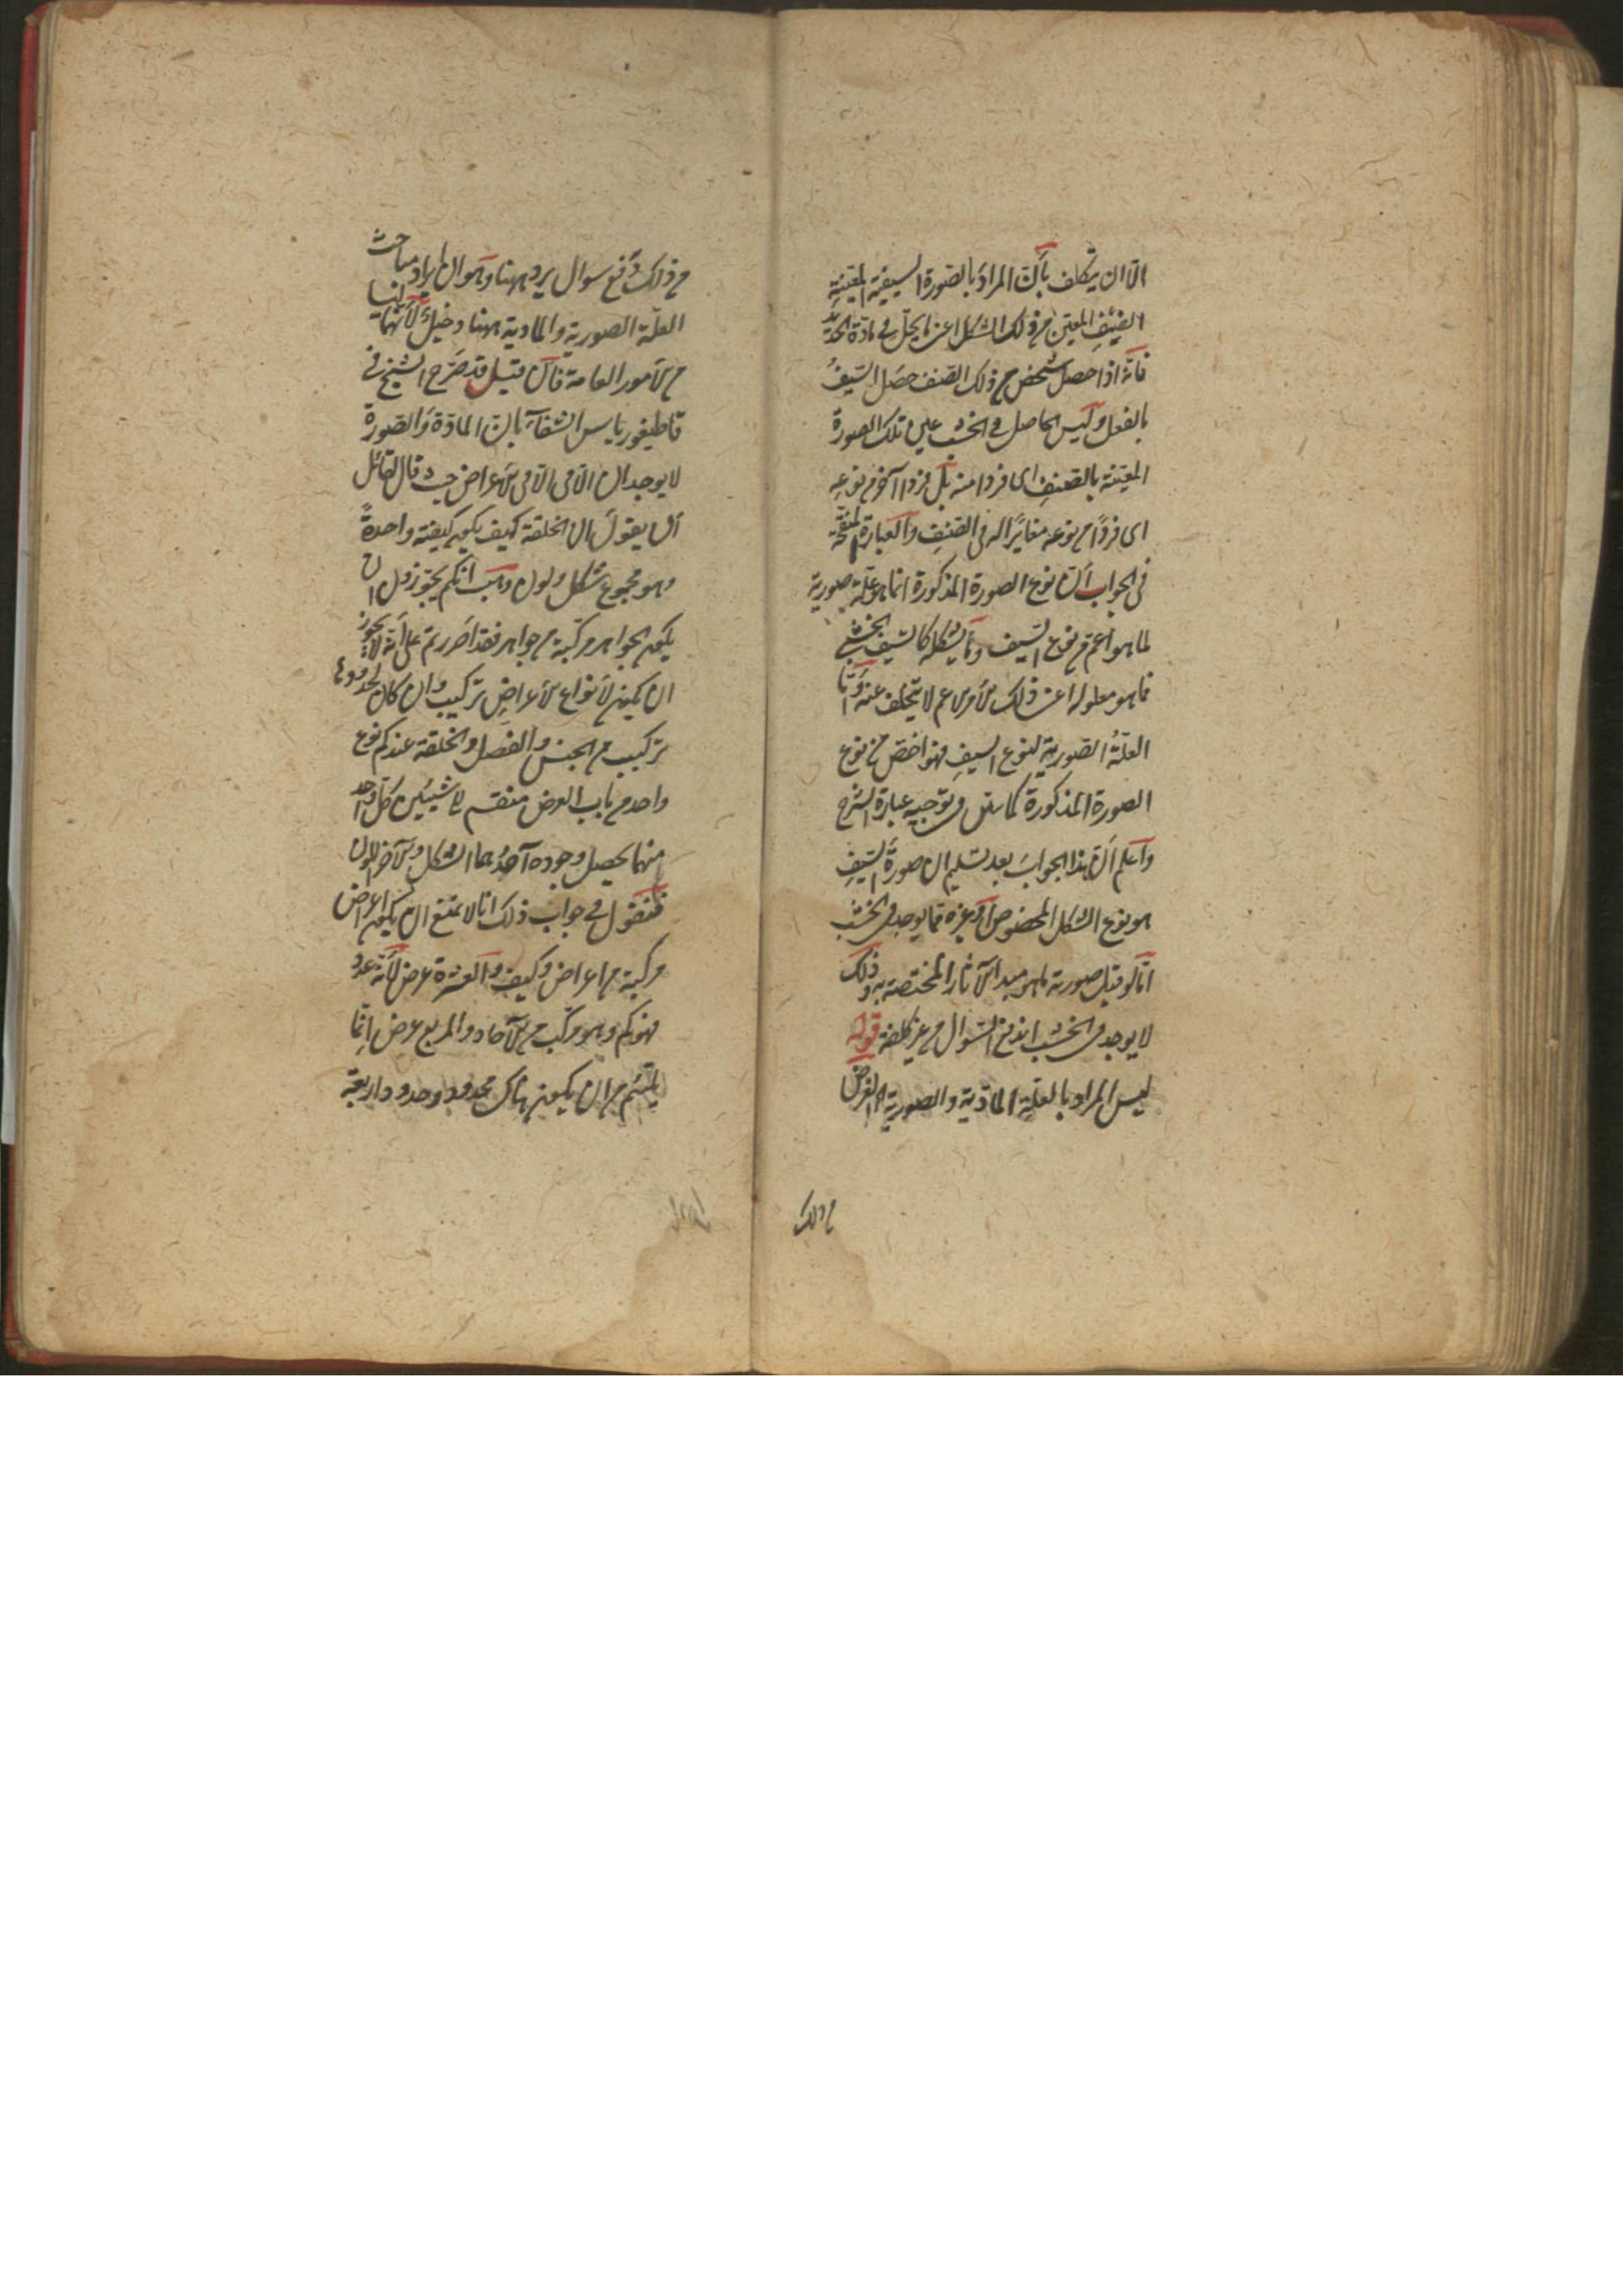 الا ان يتكلف بان المراد بالصورة السيفية المعينة
الصنف المعين من ذلك الشكل اعنى ما يحل في مادة الحديد
فانه اذا حصل شخص من ذلك الصنف حصل السيف
بالفعل وليس الحاصل في الخشب عين تلك الصورة
المعينة بالصنف اى فردا منه بل فردا آخر من نوعه
اى فردًا من نوعه مغايرًا له فى الصنف والعبارة المنقحة
فى الجواب ان نوع الصورة المذكورة انما هو علة صورية
لما هو اعم من نوع السيف وما يشكله كالسيف الخشبى
فما هو معلوله اعنى ذلك الامر الاعم لا يتخلف عنه واما
العلة الصورية لنوع السيف فهو اخص من نوع
الصورة المذكورة كما ستل فى توجيه عبارة الشرح
واعلم ان هذا الجواب بعد تسليم ان صورة السيف
هو نوع الشكل المخصوص او غيره مما يوجد فى الخشب
اما لو قيل صورته ما هو مبدأ الآثار المختصة به وذلك
لا يوجد فى الخشب اندفع السؤال من غير كلفة قوله
ليس المراد بالعلة المادية والصورية الغرض
من ذلك
من ذلك دفع سوال يرد ههنا وهو ان ايراد مباحث
العلة الصورية والمادية ههنا دخيل لانها ليسا
من الامور العامة فان قيل قد صرح الشيخ فى
قاطيغورياس الشفآء بان المادة والصورة
لا يوجدان الا فى الا فى الاعراض حيث قال لقائل
ان يقول ان الخلقة كيف يكون كيفية واحدة
وهو مجموع شكل ولون وهب انكم يجوزون ان
يكون الجواهر مركبة من جواهر فقد اصررتم على انه لا يجوز
ان يكون لانواع الاعراض تركيب وان كان لحدودها
تركيب من الجنس والفصل والخلقة عندكم نوع
واحد من باب العرض منقسم الى شيئين كل واحد
منهما يحصل وجوده احدهما الشكل والآخر اللون
فنقول في جواب ذلك انا لا نمنع ان يكون اعراض
مركبة من اعراض وكيف والعشرة عرض لانه عدد
فهو كم وهو مركب من الآحاد والمربع عرض انما
يلتئم من ان يكون هناك محدود وحدود اربعة